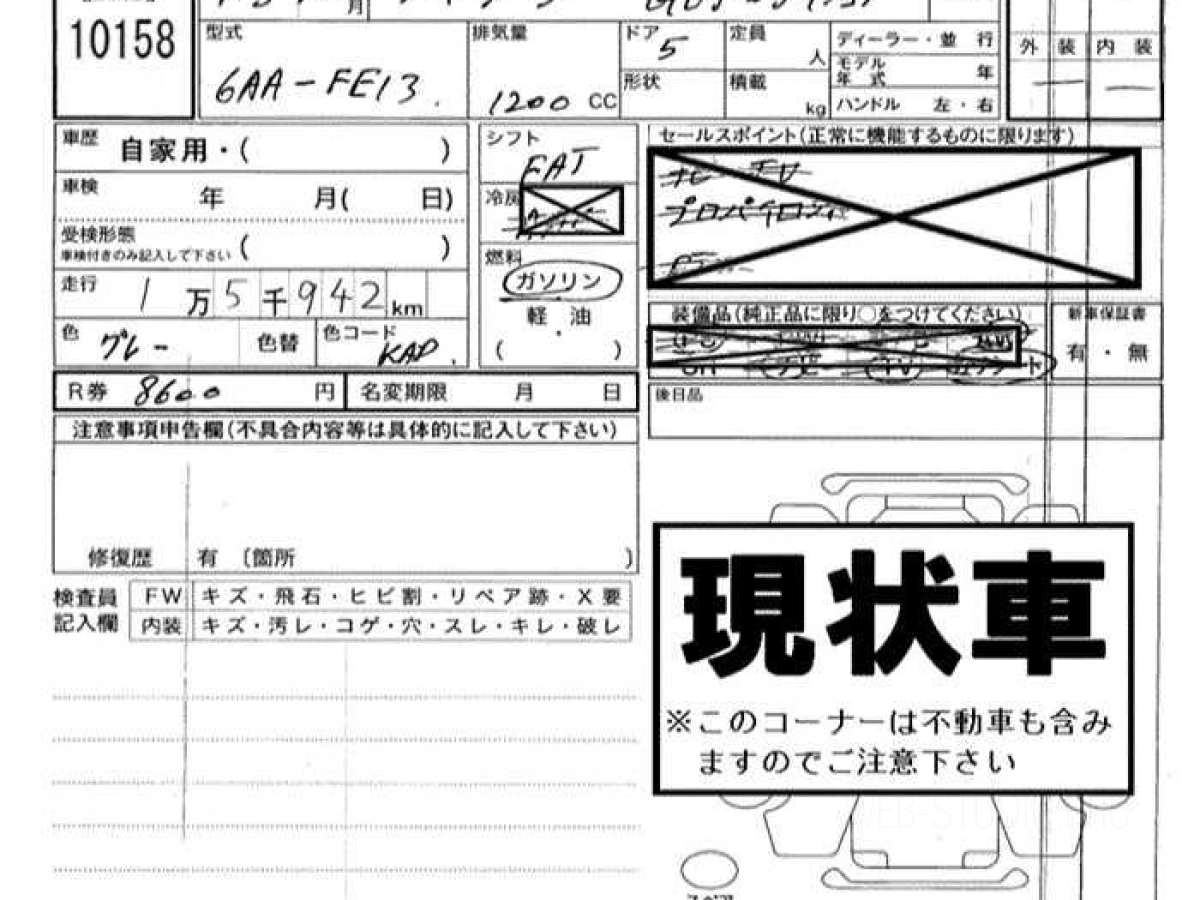 月
10158
型式
6AA-FE13
排気量
1200 CC
ドア
5
形状
定員
人
積載
kg
ディーラー・並 行
モデル
年 式 年
ハンドル 左・右
外 装 内 装
車歴
自家用・( )
車検
年 月( 日)
受検形態
車検付きのみ記入して下さい ( )
走行
1万5千942km
色
グレー
色替
色コード
KAD
シフト
FAT
冷房
燃料
ガソリン
軽 ・ 油
( )
セールスポイント(正常に機能するものに限ります)
ナビ TV
プロパイロット
装備品(純正品に限り○をつけてください)
新車保証書
有 ・ 無
R券 8600 円
名変期限 月 日
後日品
注意事項申告欄(不具合内容等は具体的に記入して下さい)
修復歴 有 〔箇所 〕
検査員
記入欄
FW キズ・飛石・ヒビ割・リペア跡・X要
内装 キズ・汚レ・コゲ・穴・スレ・キレ・破レ
現状車
※このコーナーは不動車も含み
ますのでご注意下さい